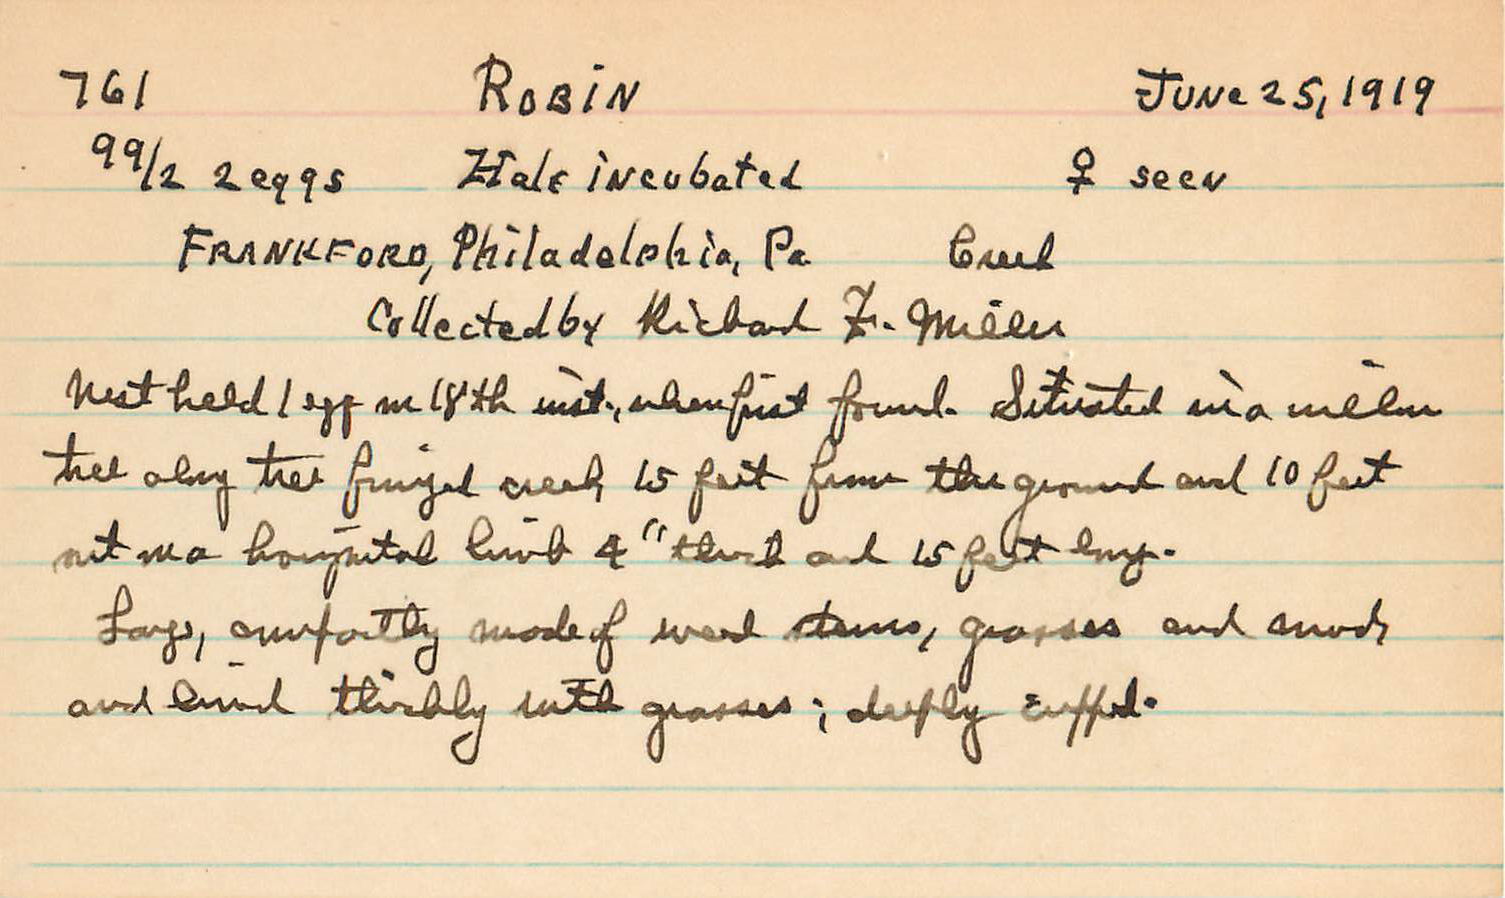 761 ROBiN JUNe 25, 1919
99/2 2 eggs Half incubated ♀ seen
FRANKFORD, Philadelphia, Pa Creek
Collected by Richard F. Miller
Nest held 1 egg on 18th inst., when first found. Situated in a willow
tree along tree fringed creek, 15 feet from the ground and 10 feet
out on a horizontal limb 4" thick and 15 feet long.
Large, compactly made of weed stems, grasses and mud,
and lined thickly with grasses; deeply cupped.